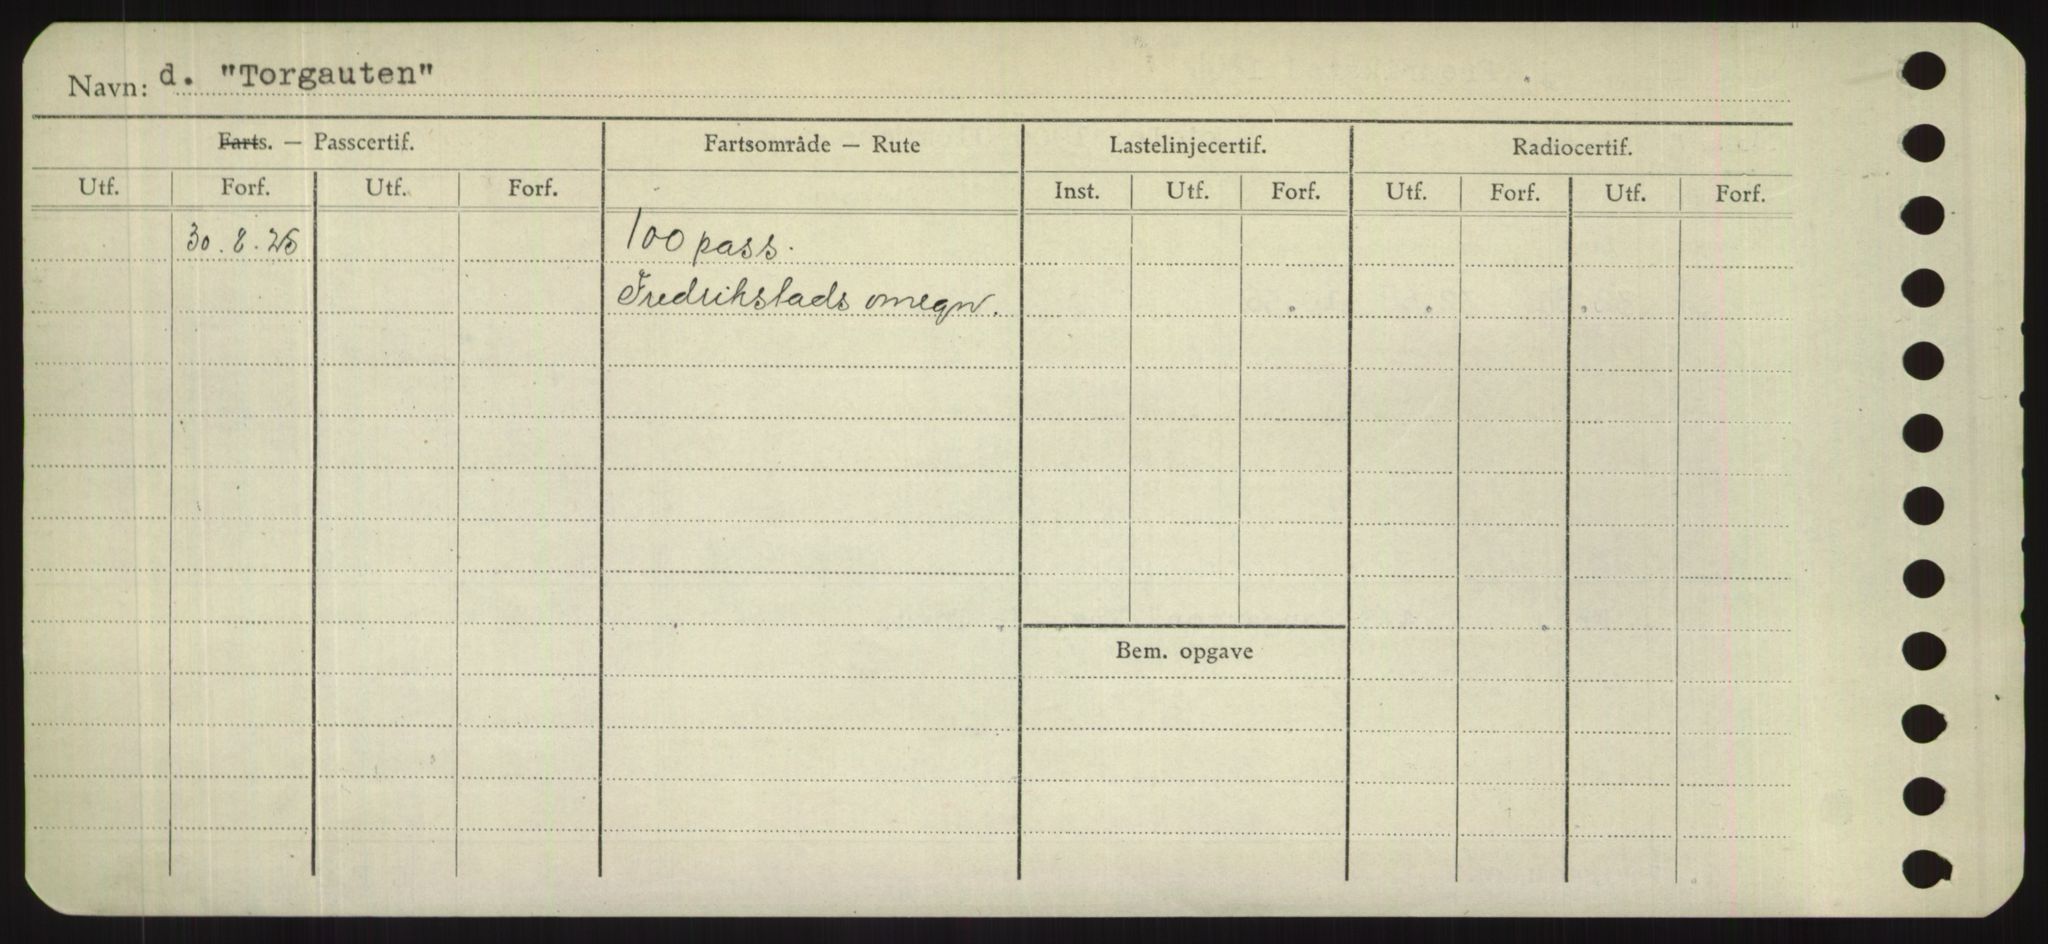 Navn: d. "Torgauten"
Farts. — Passcertif. Fartsområde — Rute Lastelinjecertif. Radiocertif.
Utf. Forf. Utf. Forf. Inst. Utf. Forf. Utf. Forf. Utf. Forf.
30.8.25 100 pass.
Fredrikstads omegn.
Bem. opgave